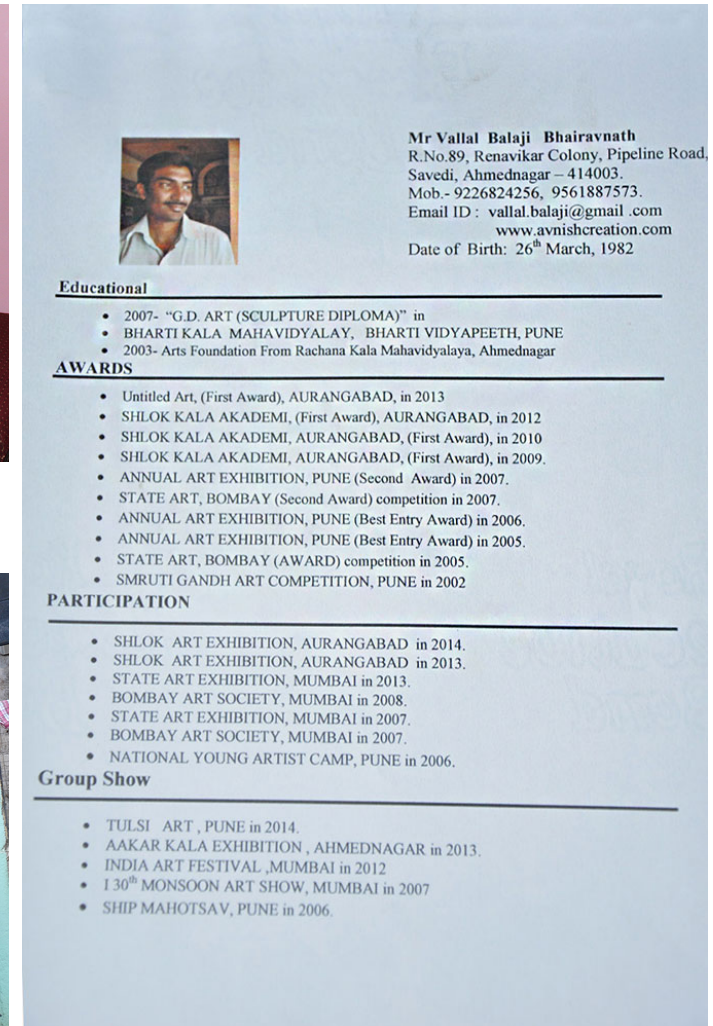 Mr Vallal Balaji Bhairavnath
R.No.89, Renavikar Colony, Pipeline Road,
Savedi, Ahmednagar – 414003.
Mob.- 9226824256, 9561887573.
Email ID : vallal.balaji@gmail .com
www.avnishcreation.com
Date of Birth: 26th March, 1982
Educational
• 2007- “G.D. ART (SCULPTURE DIPLOMA)” in
• BHARTI KALA MAHAVIDYALAY, BHARTI VIDYAPEETH, PUNE
• 2003- Arts Foundation From Rachana Kala Mahavidyalaya, Ahmednagar
AWARDS
• Untitled Art, (First Award), AURANGABAD, in 2013
• SHLOK KALA AKADEMI, (First Award), AURANGABAD, in 2012
• SHLOK KALA AKADEMI, AURANGABAD, (First Award), in 2010
• SHLOK KALA AKADEMI, AURANGABAD, (First Award), in 2009.
• ANNUAL ART EXHIBITION, PUNE (Second Award) in 2007.
• STATE ART, BOMBAY (Second Award) competition in 2007.
• ANNUAL ART EXHIBITION, PUNE (Best Entry Award) in 2006.
• ANNUAL ART EXHIBITION, PUNE (Best Entry Award) in 2005.
• STATE ART, BOMBAY (AWARD) competition in 2005.
• SMRUTI GANDH ART COMPETITION, PUNE in 2002
PARTICIPATION
• SHLOK ART EXHIBITION, AURANGABAD in 2014.
• SHLOK ART EXHIBITION, AURANGABAD in 2013.
• STATE ART EXHIBITION, MUMBAI in 2013.
• BOMBAY ART SOCIETY, MUMBAI in 2008.
• STATE ART EXHIBITION, MUMBAI in 2007.
• BOMBAY ART SOCIETY, MUMBAI in 2007.
• NATIONAL YOUNG ARTIST CAMP, PUNE in 2006.
Group Show
• TULSI ART , PUNE in 2014.
• AAKAR KALA EXHIBITION , AHMEDNAGAR in 2013.
• INDIA ART FESTIVAL ,MUMBAI in 2012
• I 30th MONSOON ART SHOW, MUMBAI in 2007
• SHIP MAHOTSAV, PUNE in 2006.